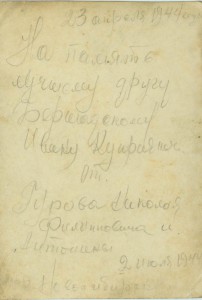 23 апреля 1944 года
На память
лучшему другу
Вершадскому
Ивану Куприянч.
от.
Перова Николая
Филипповича и
Антонины
2 июля 1944